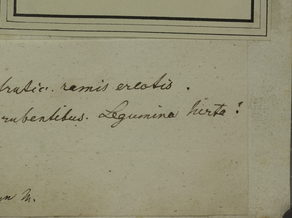 frutic. ramis erectis.
rubentibus. Legumina hirta?
n M.